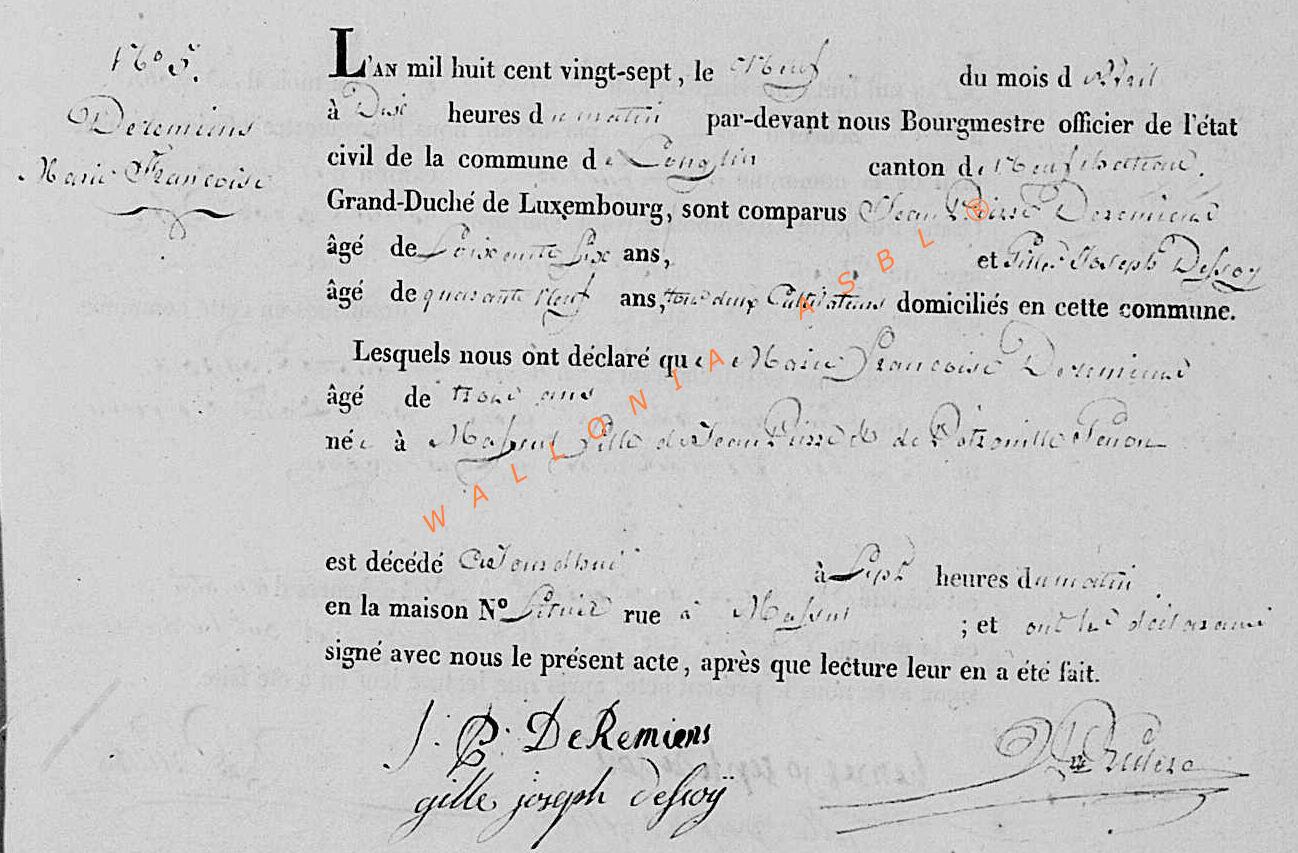 N.° 5.
Deremiens
Marie Françoise
L'AN mil huit cent vingt-sept, le Neuf du mois d'avril
à Dix heures du matin par-devant nous Bourgmestre officier de l'état
civil de la commune de Longlier canton de Neufchateau.
Grand-Duché de Luxembourg, sont comparus Jean Pierre Deremiens
âgé de Soixante Six ans, et Gille Joseph Dessoy
âgé de quarante Neuf ans, tous deux Cultivateurs domiciliés en cette commune.
Lesquels nous ont déclaré que Marie Françoise Deremiens
âgé de trois ans
née à Massul fille de Jean Pierre & de Petronille
est décédé Aujourdhui à Sept heures du matin
en la maison N° rue à Massul ; et ont les déclarants
signé avec nous le présent acte, après que lecture leur en a été fait.
J. P. DeRemiens
gille joseph dessoÿ
WALLONIA ASBL ®